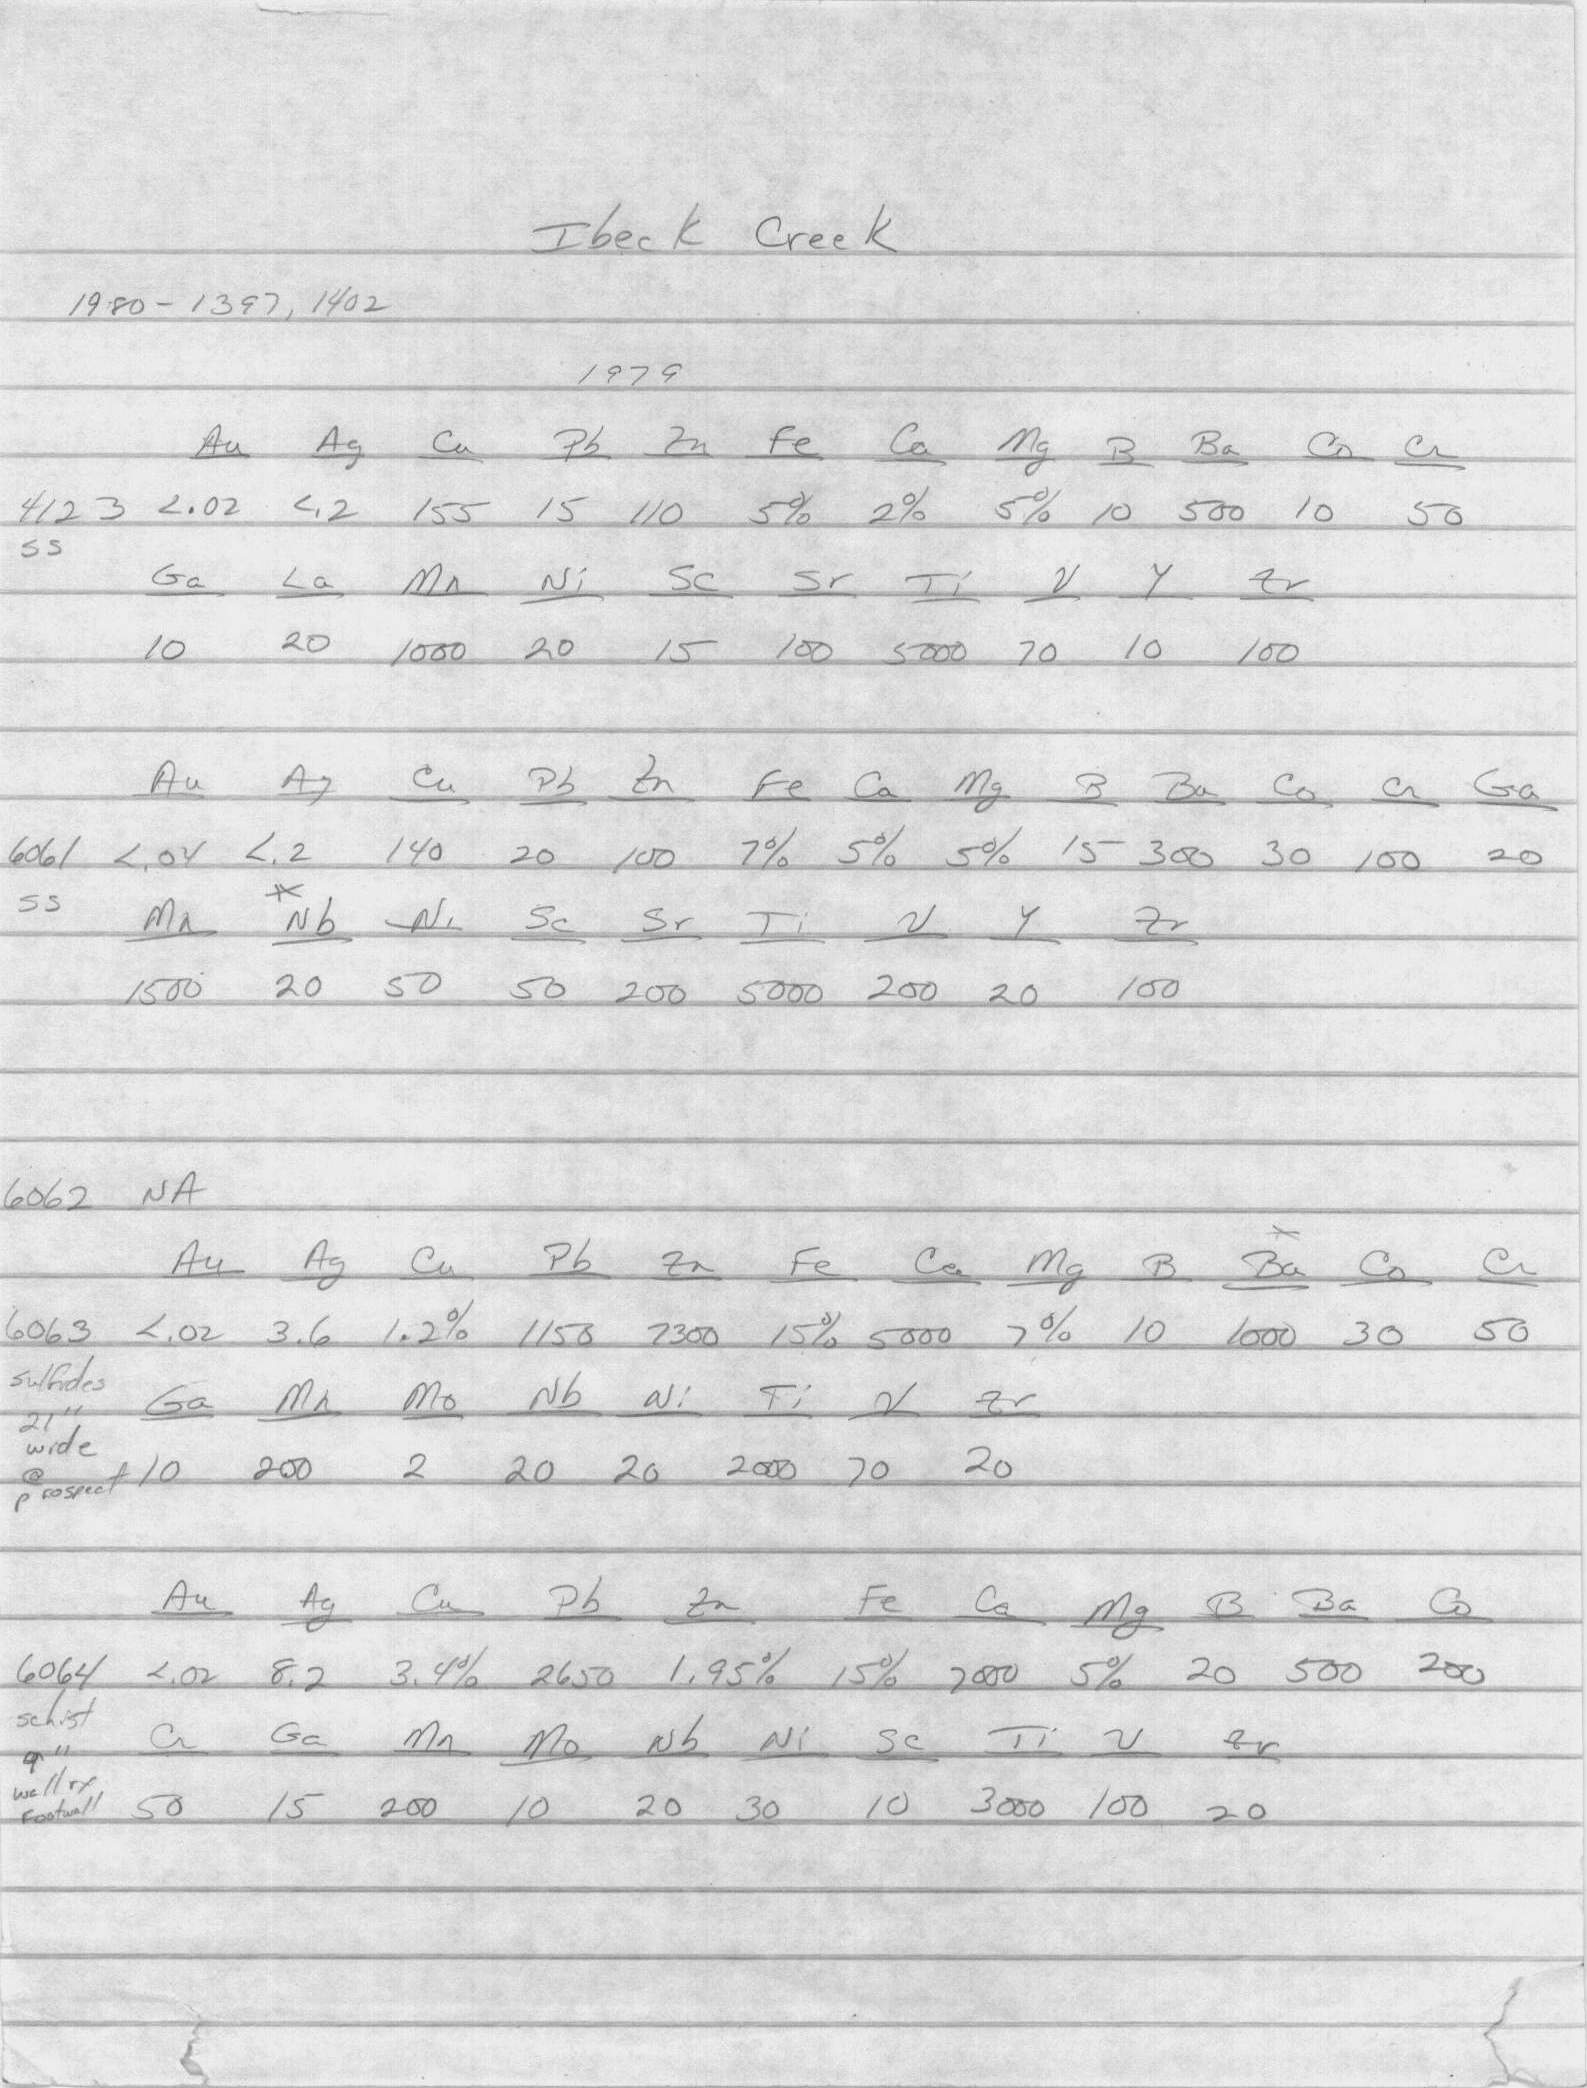 Ibeck Creek
1980 - 1397, 1402
1979
Au Ag Cu Pb Zn Fe Ca Mg B Ba Co Cr
4123 <.02 <.2 155 15 110 5% 2% 5% 10 500 10 50
SS
Ga La Mn Ni Sc Sr Ti V Y Zr
10 20 1000 20 15 100 5000 70 10 100
Au Ag Cu Pb Zn Fe Ca Mg B Ba Co Cr Ga
6061 <.04 <.2 140 20 100 7% 5% 5% 15 300 30 100 20
SS
Mn *Nb Ni Sc Sr Ti V Y Zr
1500 20 50 50 200 5000 200 20 100
6062 NA
Au Ag Cu Pb Zn Fe Ca Mg B *Ba Co Cr
6063 <.02 3.6 1.2% 1150 7300 15% 5000 7% 10 1000 30 50
sulfides
Ga Mn Mo Nb Ni Ti V Zr
21"
wide
@ 10 200 2 20 20 2000 70 20
prospect
Au Ag Cu Pb Zn Fe Ca Mg B Ba Co
6064 <.02 8.2 3.4% 2650 1.95% 15% 7000 5% 20 500 200
schist
Cr Ga Mn Mo Nb Ni Sc Ti V Zr
9"
wall rx
Footwall 50 15 200 10 20 30 10 3000 100 20